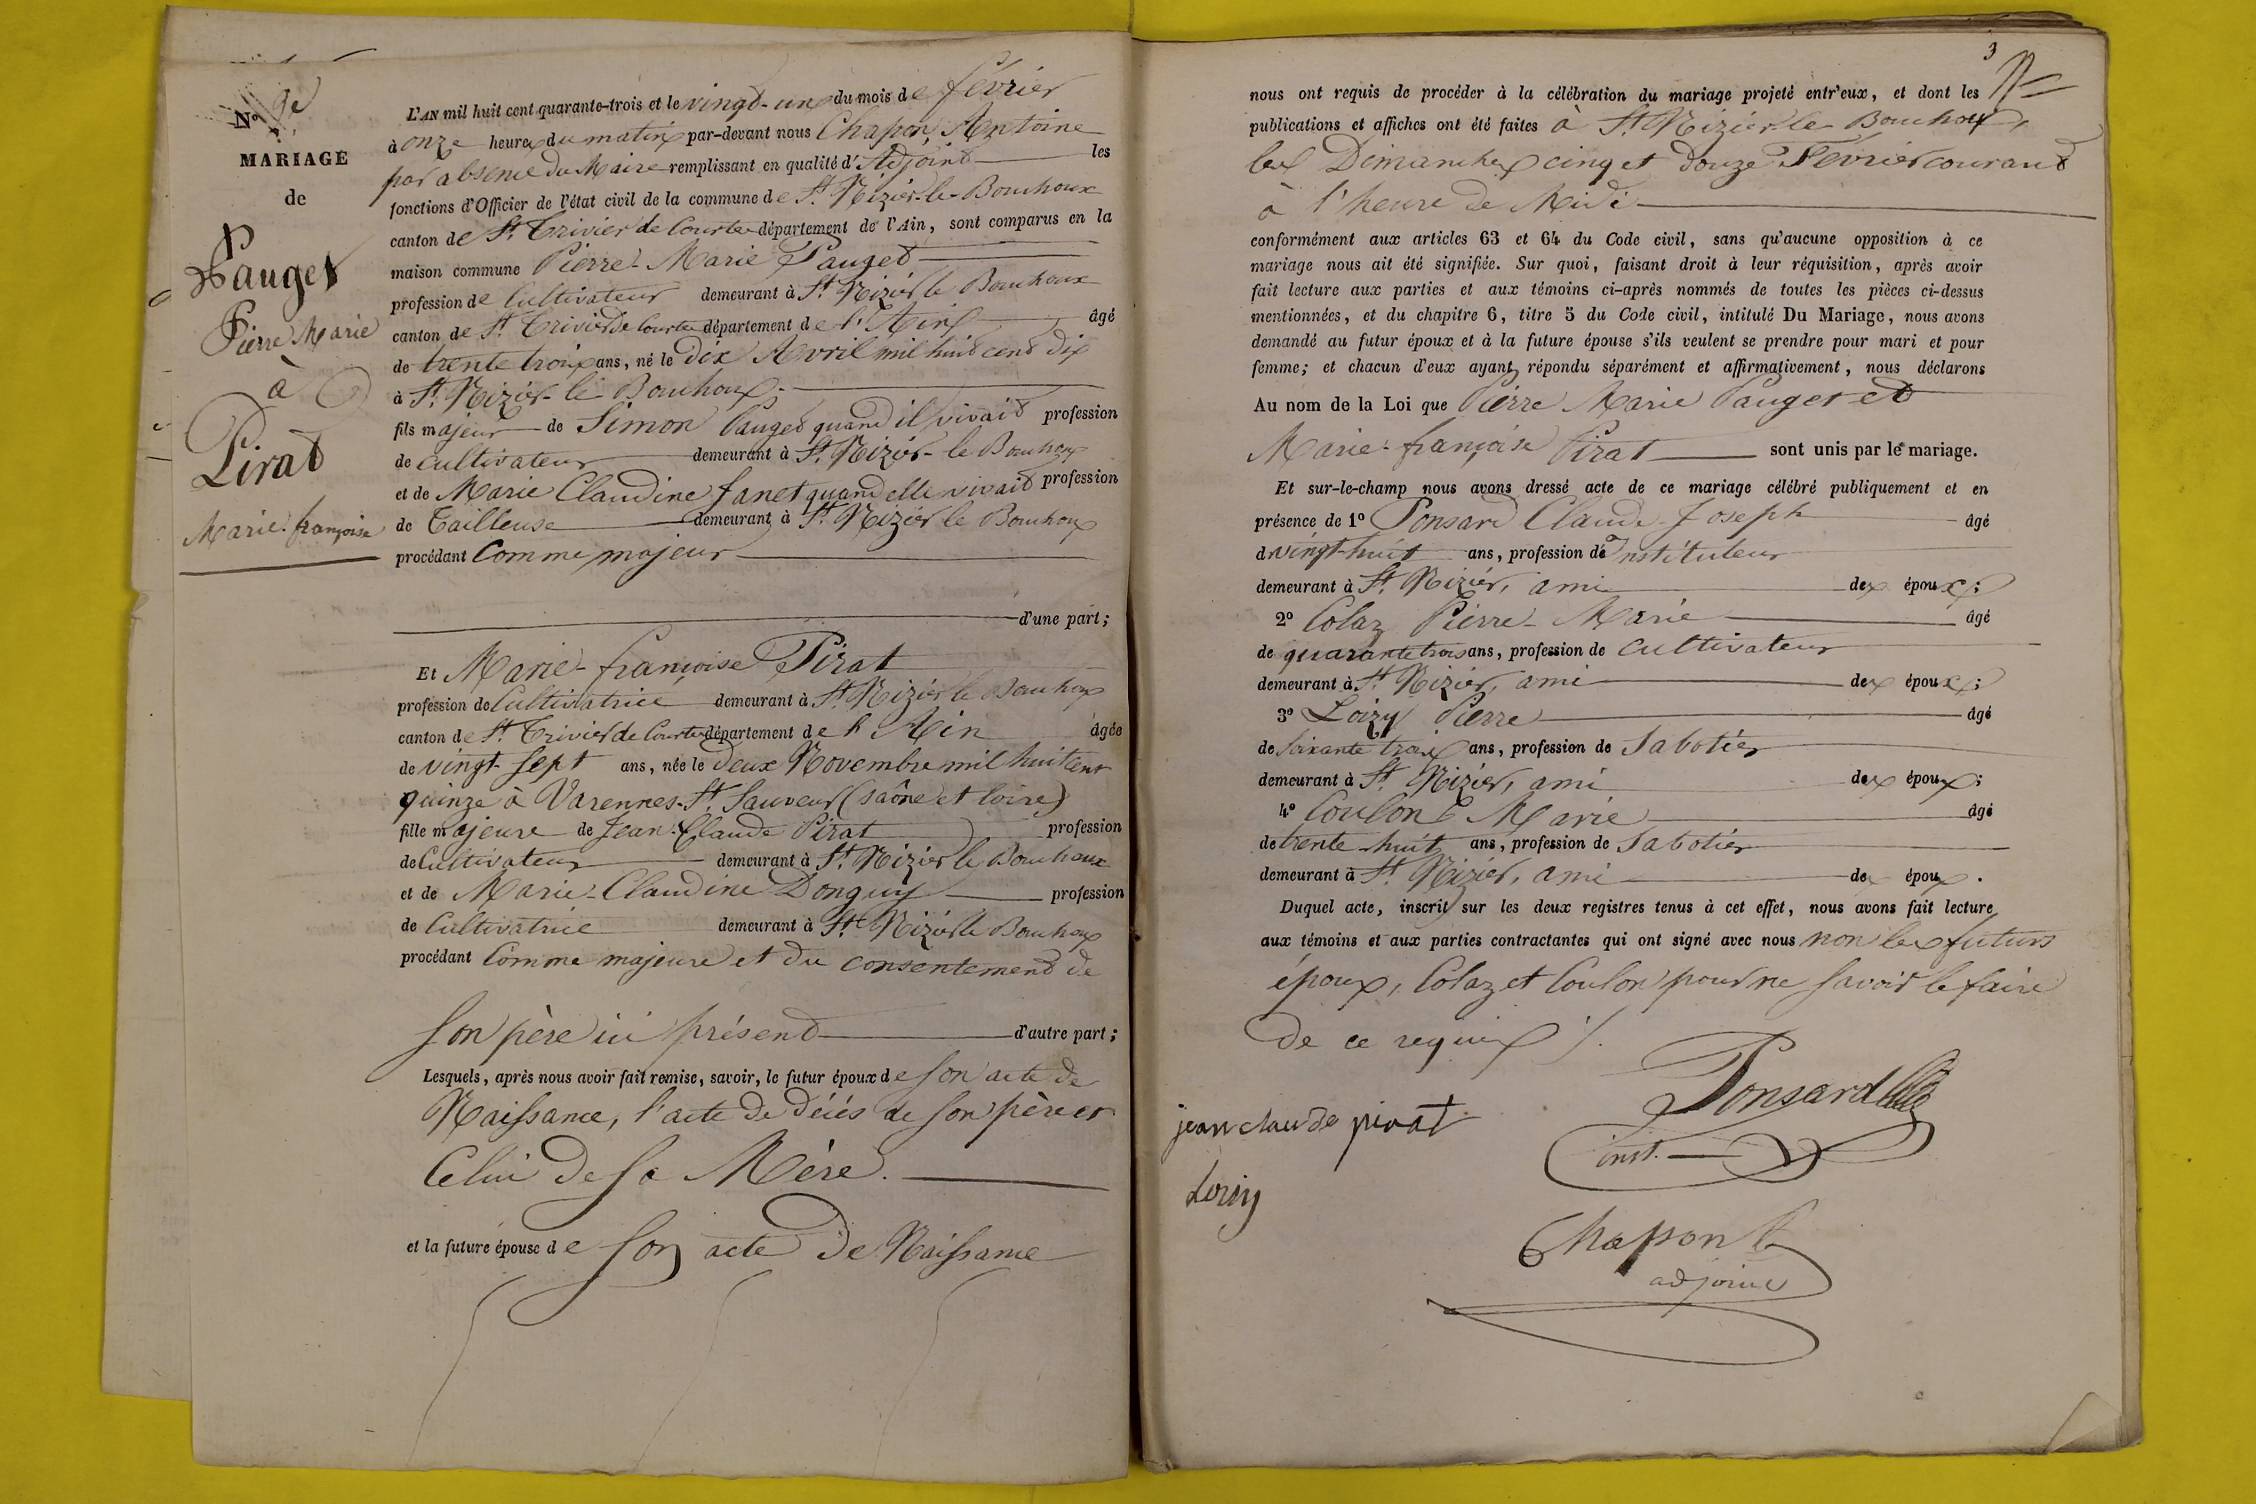 N° 2e
MARIAGE
de
Pauget
Pierre Marie
à
Pirat
Marie-françoise
L'AN mil huit cent quarante-trois et le vingt-un du mois de février
à onze heures du matin par-devant nous Chapon, Antoine
par absence du Maire remplissant en qualité d'Adjoint les
fonctions d'Officier de l'état civil de la commune de St Nizier-le-Bouchoux
canton de St Trivier de Courtes département de l'Ain, sont comparus en la
maison commune Pierre-Marie Pauget
profession de Cultivateur demeurant à St Nizier le Bouchoux
canton de St Trivier de Courtes département de l'Ain âgé
de trente trois ans, né le dix Avril mil huit cent dix
à St Nizier-le Bouchoux.
fils majeur de Simon Pauget quand il vivait profession
de cultivateur demeurant à St Nizier-le Bouchoux
et de Marie Claudine Janet quand elle vivait profession
de Tailleuse demeurant à St Nizier le Bouchoux
procédant Comme majeur
d'une part;
Et Marie-françoise Pirat
profession de Cultivatrice demeurant à St Nizier le Bouchoux
canton de St Trivier de Courtes département de l'Ain âgée
de vingt-sept ans, née le deux Novembre mil huit cent
quinze à Varennes-St Sauveur (saône et loire)
fille majeure de Jean-Claude Pirat profession
de Cultivateur demeurant à St Nizier le Bouchoux
et de Marie-Claudine Donguy profession
de Cultivatrice demeurant à St Nizier le Bouchoux
procédant Comme majeure et du consentement de
son père ici présent d'autre part;
Lesquels, après nous avoir fait remise, savoir, le futur époux de son acte de
Naissance, l'acte de décés de son père et
Celui de sa Mère.
et la future épouse de son acte de Naissance
3
nous ont requis de procéder à la célébration du mariage projeté entr'eux, et dont les
publications et affiches ont été faites à St Nizier-le-Bouchoux,
les Dimanches cinq et douze Février courant
à l'heure de Midi
conformément aux articles 63 et 64 du Code civil, sans qu'aucune opposition à ce
mariage nous ait été signifiée. Sur quoi, faisant droit à leur réquisition, après avoir
fait lecture aux parties et aux témoins ci-après nommés de toutes les pièces ci-dessus
mentionnées, et du chapitre 6, titre 5 du Code civil, intitulé Du Mariage, nous avons
demandé au futur époux et à la future épouse s'ils veulent se prendre pour mari et pour
femme; et chacun d'eux ayant répondu séparément et affirmativement, nous déclarons
Au nom de la Loi que Pierre Marie Pauget et
Marie-françoise Pirat sont unis par le mariage.
Et sur-le-champ nous avons dressé acte de ce mariage célébré publiquement et en
présence de 1° Ponsard Claude-Joseph âgé
de vingt-huit ans, profession de Instituteur
demeurant à St Nizier, ami des époux;
2° Colaz Pierre-Marie âgé
de quarante trois ans, profession de cultivateur
demeurant à St Nizier, ami des époux;
3° Loizy Pierre âgé
de soixante trois ans, profession de Sabotier
demeurant à St Nizier, ami des époux;
4° Coulon Marie âgé
de trente-huit ans, profession de Sabotier
demeurant à St Nizier, ami des époux.
Duquel acte, inscrit sur les deux registres tenus à cet effet, nous avons fait lecture
aux témoins et aux parties contractantes qui ont signé avec nous non les futurs
époux, Colaz et Coulon pour ne savoir le faire
de ce requis ./.
Ponsard
jean claude pirat
inst.
Chapon
adjoint